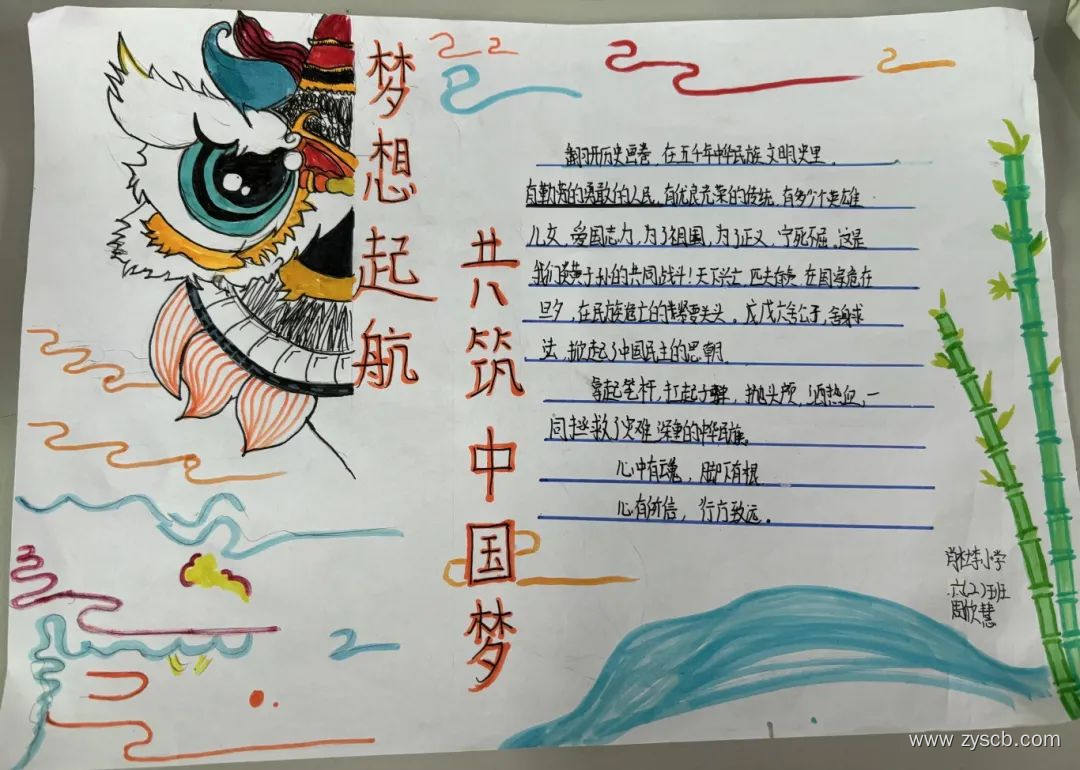 梦想起航
共筑中国梦
翻开历史画卷,在五千年中华民族文明史里,
有勤劳的勇敢的人民,有优良光荣的传统,有多少个英雄
儿女,爱国志力,为了祖国,为了正义,宁死不屈,这是
我们炎黄子孙的共同战斗!天下兴亡,匹夫有责,在国家危在
旦夕,在民族危亡的紧要关头,戊戌六君子,舍身求
法,掀起了中国民主的思朝。
拿起笔杆,扛起,抛头颅,洒热血,一
同拯救了灾难深重的中华民族。
心中有魂,脚下有根
心有所信,行方致远。
李小学
六(2)班
周欣慧
www.zyscb.com